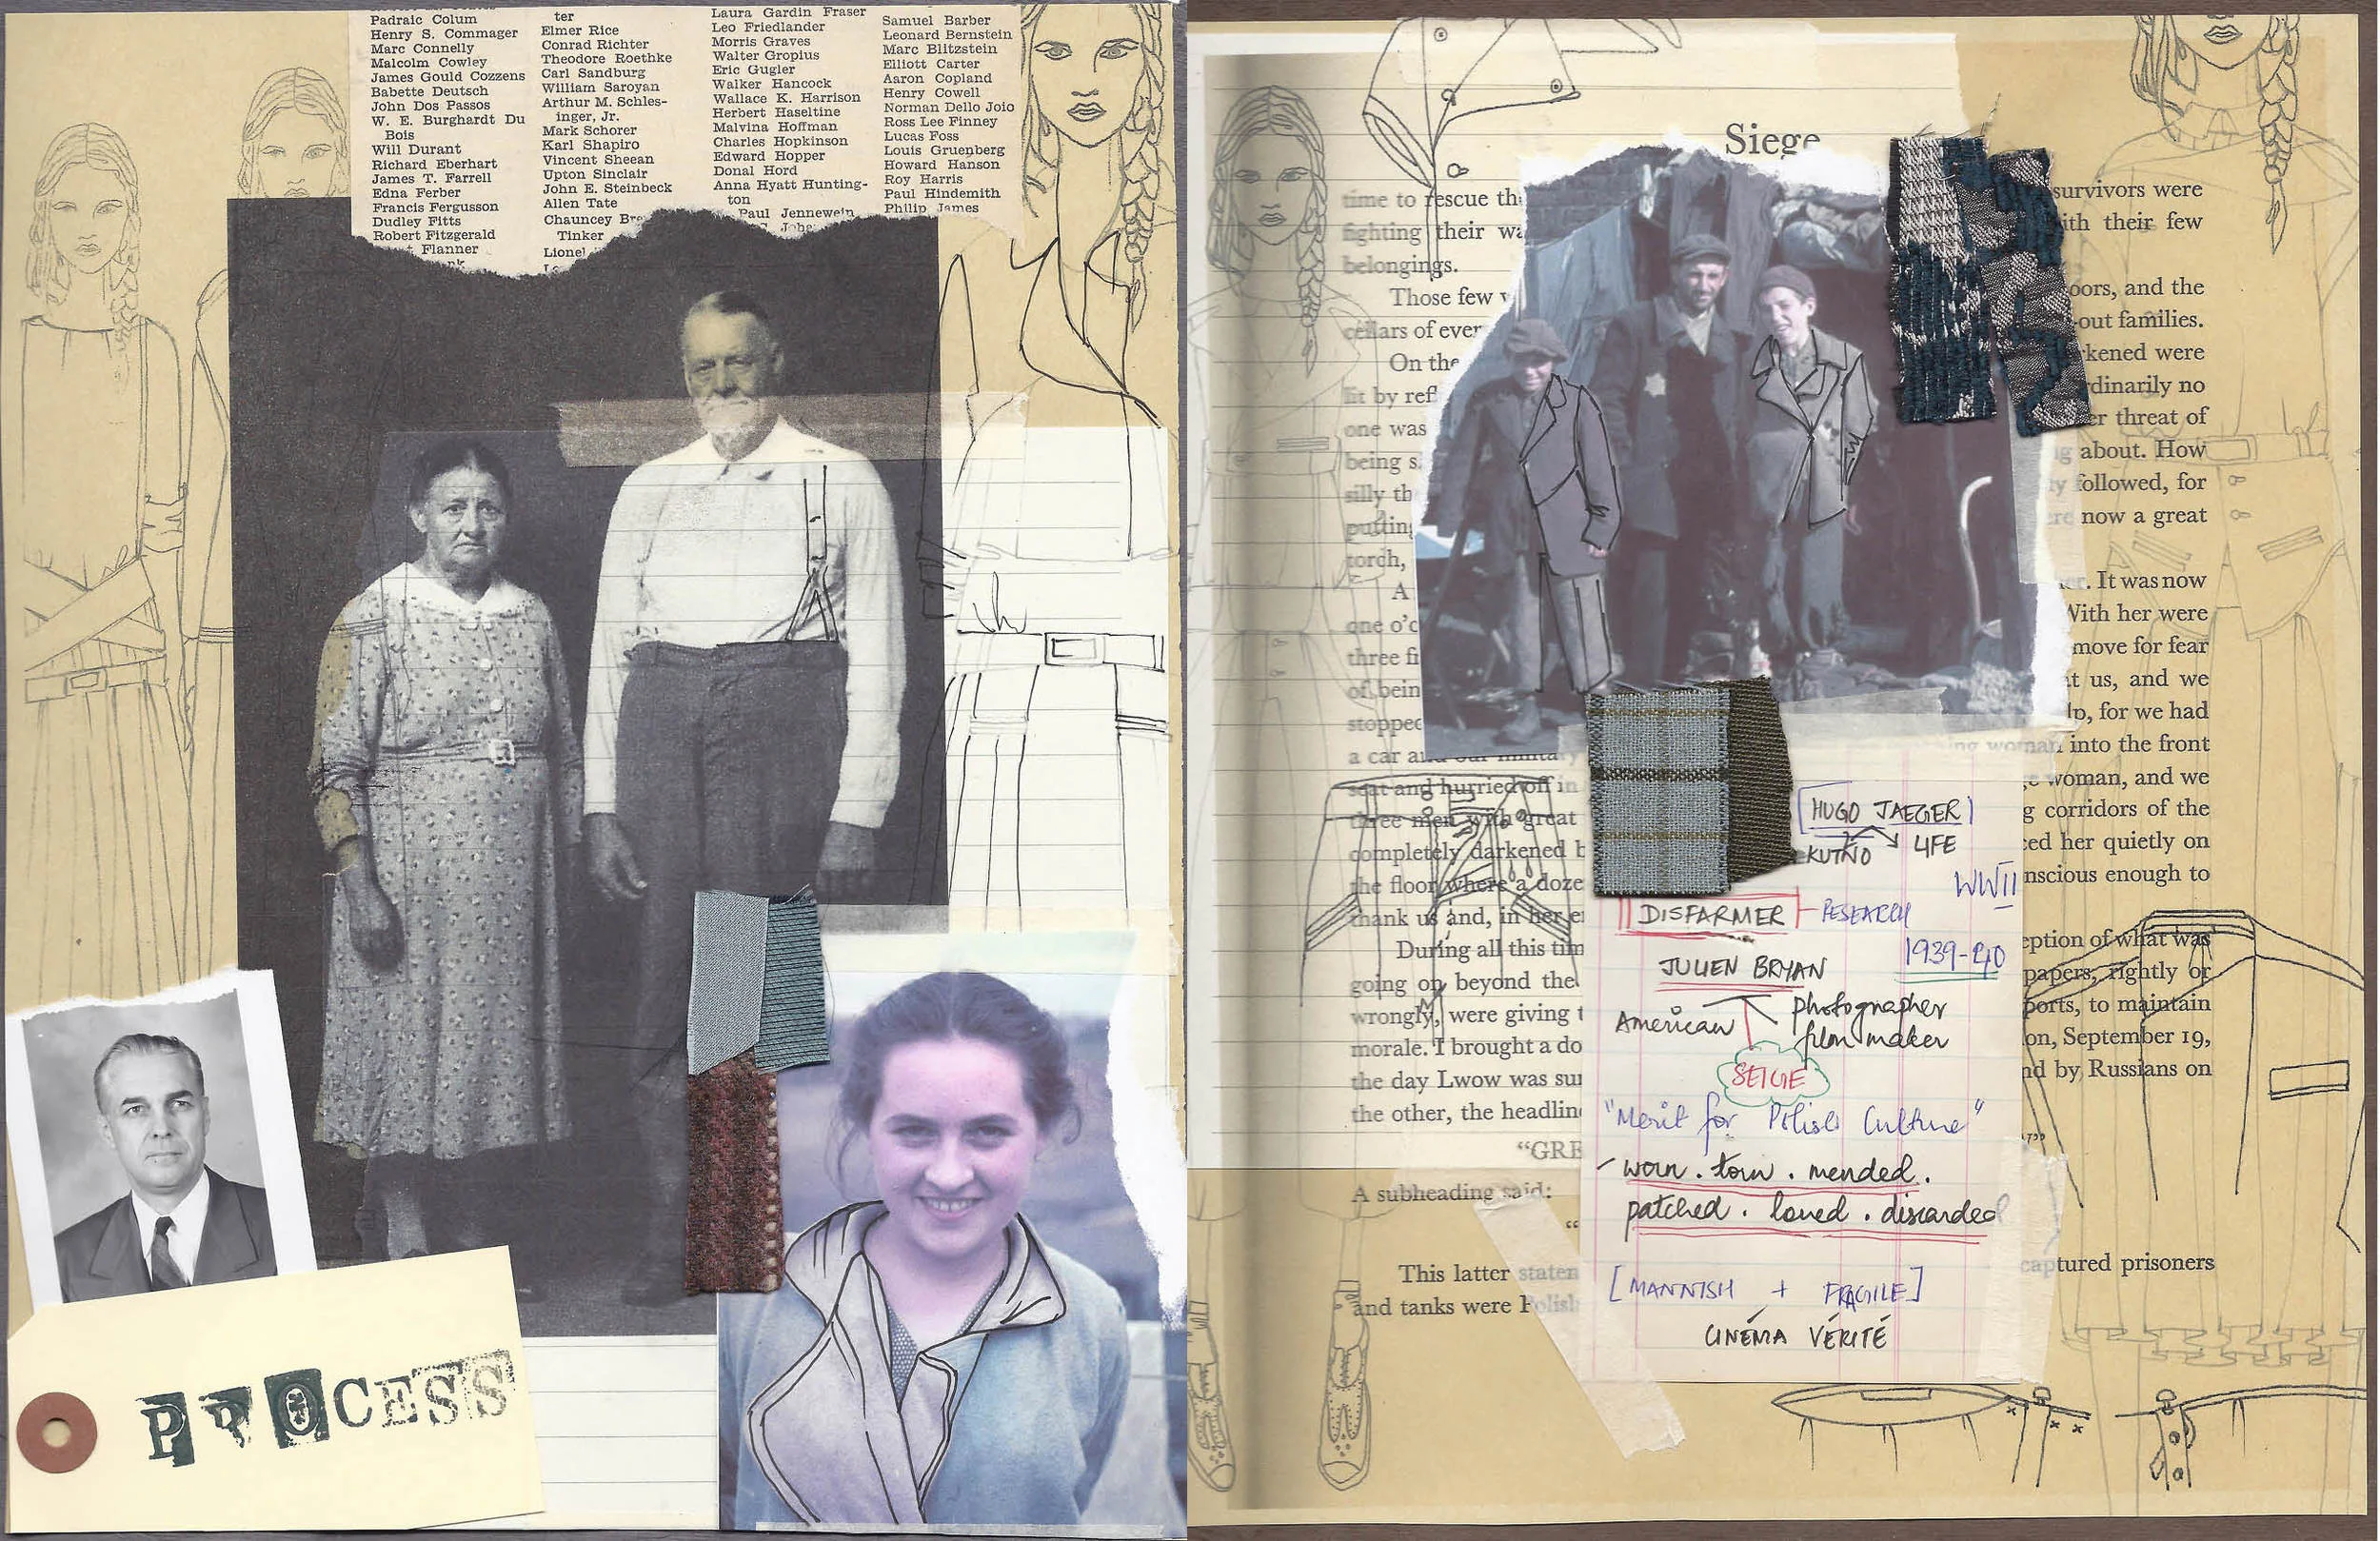 Padraic Colum
Henry S. Commager
Marc Connelly
Malcolm Cowley
James Gould Cozzens
Babette Deutsch
John Dos Passos
W. E. Burghardt Du
Bois
Will Durant
Richard Eberhart
James T. Farrell
Edna Ferber
Francis Fergusson
Dudley Fitts
Robert Fitzgerald
Flanner
ter
Elmer Rice
Conrad Richter
Theodore Roethke
Carl Sandburg
William Saroyan
Arthur M. Schles-
inger, Jr.
Mark Schorer
Karl Shapiro
Vincent Sheean
Upton Sinclair
John E. Steinbeck
Allen Tate
Chauncey Bre
Tinker
Lionel
Laura Gardin Fraser
Leo Friedlander
Morris Graves
Walter Gropius
Eric Gugler
Walker Hancock
Wallace K. Harrison
Herbert Haseltine
Malvina Hoffman
Charles Hopkinson
Edward Hopper
Donal Hord
Anna Hyatt Hunting-
ton
Paul Jennewein
Samuel Barber
Leonard Bernstein
Marc Blitzstein
Elliott Carter
Aaron Copland
Henry Cowell
Norman Dello Joio
Ross Lee Finney
Lucas Foss
Louis Gruenberg
Howard Hanson
Roy Harris
Paul Hindemith
Philip James
PROCESS
Siege
time to rescue th
fighting their wa
belongings.
Those few
cellars of ever
On the
lit by ref
one was
being s
silly th
putting
torch,
A
one o'c
three fi
of bein
stopped
a car and our military
seat and hurried off in
three men with great
completely darkened b
the floor where a doze
thank us and, in her e
During all this tim
going on beyond the
wrongly, were giving t
morale. I brought a do
the day Lwow was sur
the other, the headlin
"GRE
A subheading said:
"
This latter staten
and tanks were Polish
survivors were
ith their few
oors, and the
-out families.
rkened were
rdinarily no
er threat of
g about. How
ty followed, for
ere now a great
er. It was now
With her were
move for fear
t us, and we
lp, for we had
ing woman into the front
e woman, and we
g corridors of the
ced her quietly on
nscious enough to
eption of what was
papers, rightly or
ports, to maintain
on, September 19,
nd by Russians on
captured prisoners
HUGO JAEGER
KUTNO LIFE
WWII
DISFARMER RESEARCH
1939-40
JULIEN BRYAN
American photographer
film maker
SEIGE
"Merit for Polish Culture"
- worn . torn . mended .
patched . loved . discarded
[MANNISH + FRAGILE]
CINÉMA VÉRITÉ